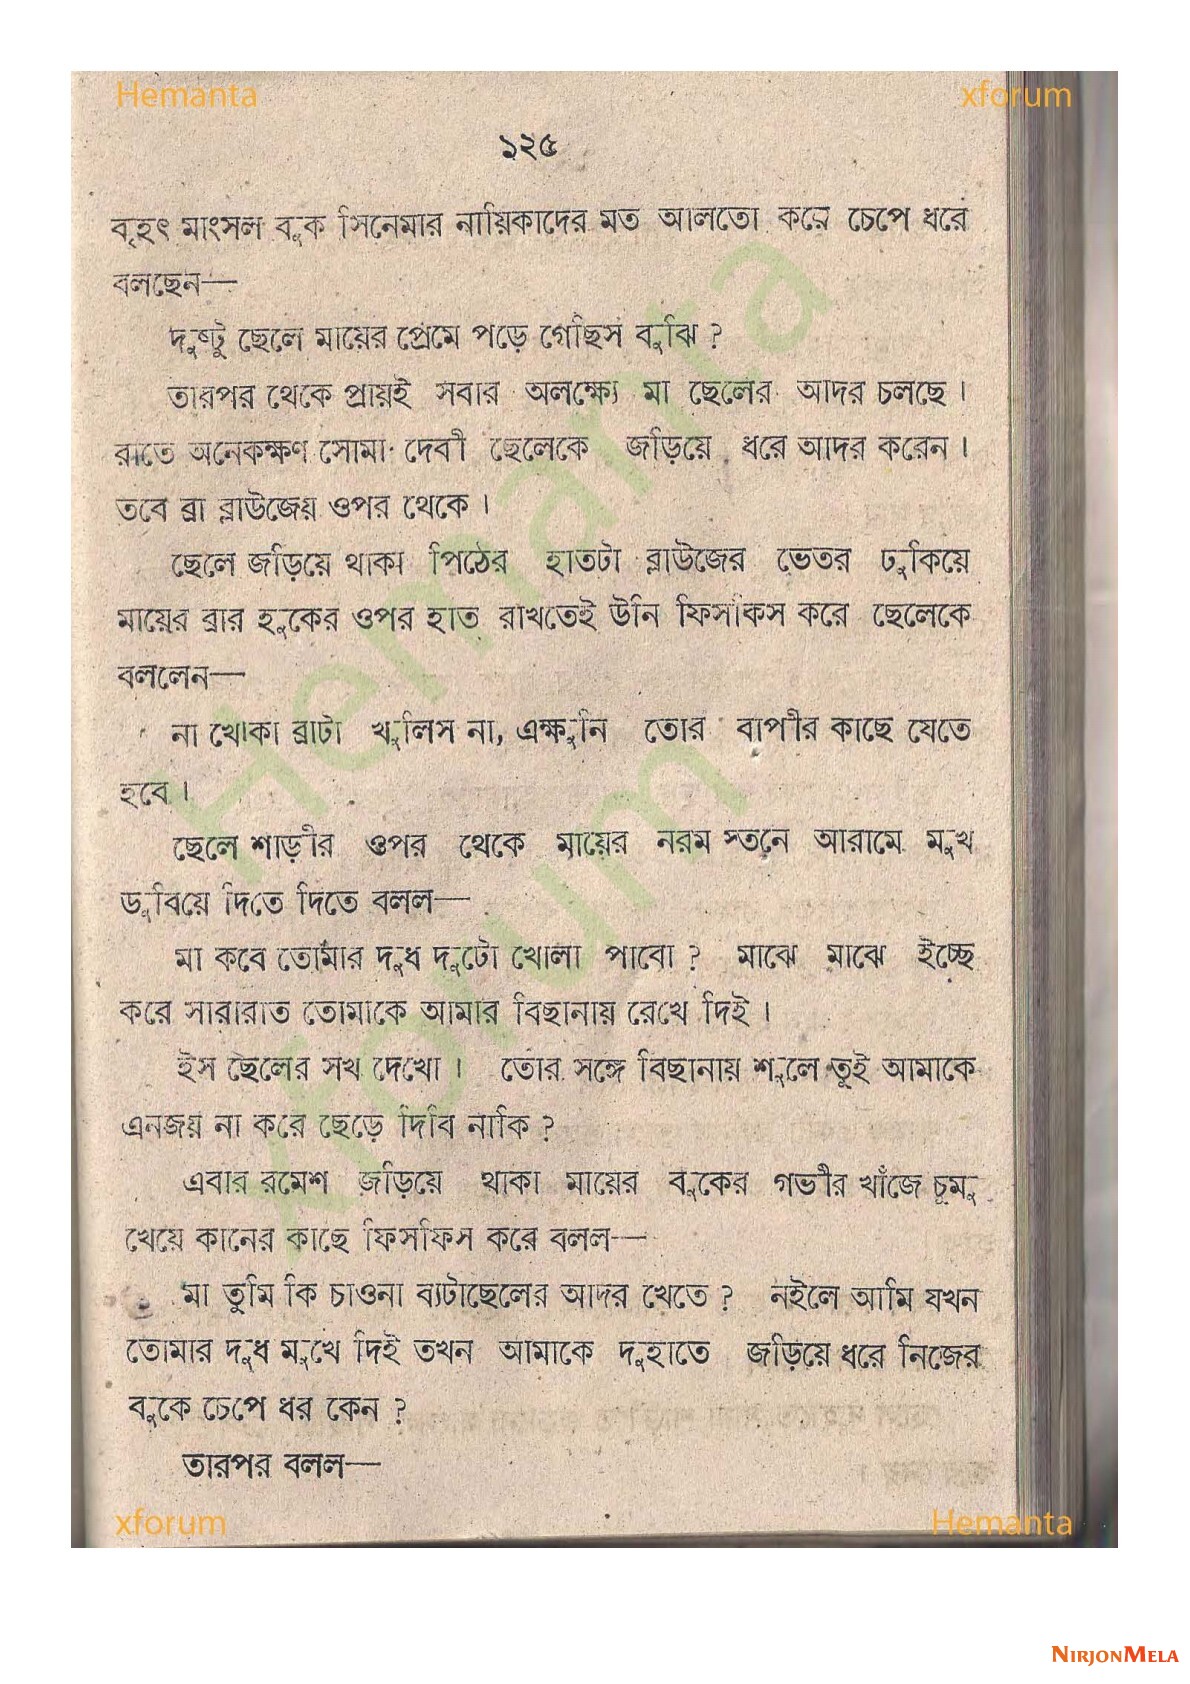 Hemanta xforum
১২৫
বৃহৎ মাংসল বুক সিনেমার নায়িকাদের মত আলতো করে চেপে ধরে
বলছেন—
দুষ্টু ছেলে মায়ের প্রেমে পড়ে গেছিস বুঝি ?
তারপর থেকে প্রায়ই সবার অলক্ষ্যে মা ছেলের আদর চলছে ।
রাতে অনেকক্ষণ সোমা দেবী ছেলেকে জড়িয়ে ধরে আদর করেন ।
তবে ব্রা ব্লাউজেয় ওপর থেকে ।
ছেলে জড়িয়ে থাকা পিঠের হাতটা ব্লাউজের ভেতর ঢুকিয়ে
মায়ের ব্রার হুকের ওপর হাত রাখতেই উনি ফিসকিস করে ছেলেকে
বললেন—
না খোকা ব্রাটা খুলিস না, এক্ষুনি তোর বাপীর কাছে যেতে
হবে ।
ছেলে শাড়ীর ওপর থেকে মায়ের নরম স্তনে আরামে মুখ
ডুবিয়ে দিতে দিতে বলল—
মা কবে তোমার দুধ দুটো খোলা পাবো ? মাঝে মাঝে ইচ্ছে
করে সারারাত তোমাকে আমার বিছানায় রেখে দিই ।
ইস ছেলের সখ দেখো । তোর সঙ্গে বিছানায় শুলে তুই আমাকে
এনজয় না করে ছেড়ে দিবি নাকি ?
এবার রমেশ জড়িয়ে থাকা মায়ের বুকের গভীর খাঁজে চুমু
খেয়ে কানের কাছে ফিসফিস করে বলল—
মা তুমি কি চাওনা ব্যটাছেলের আদর খেতে ? নইলে আমি যখন
তোমার দুধ মুখে দিই তখন আমাকে দুহাতে জড়িয়ে ধরে নিজের
বুকে চেপে ধর কেন ?
তারপর বলল—
xforum Hemanta
Hemanta
xforum
NIRJONMELA